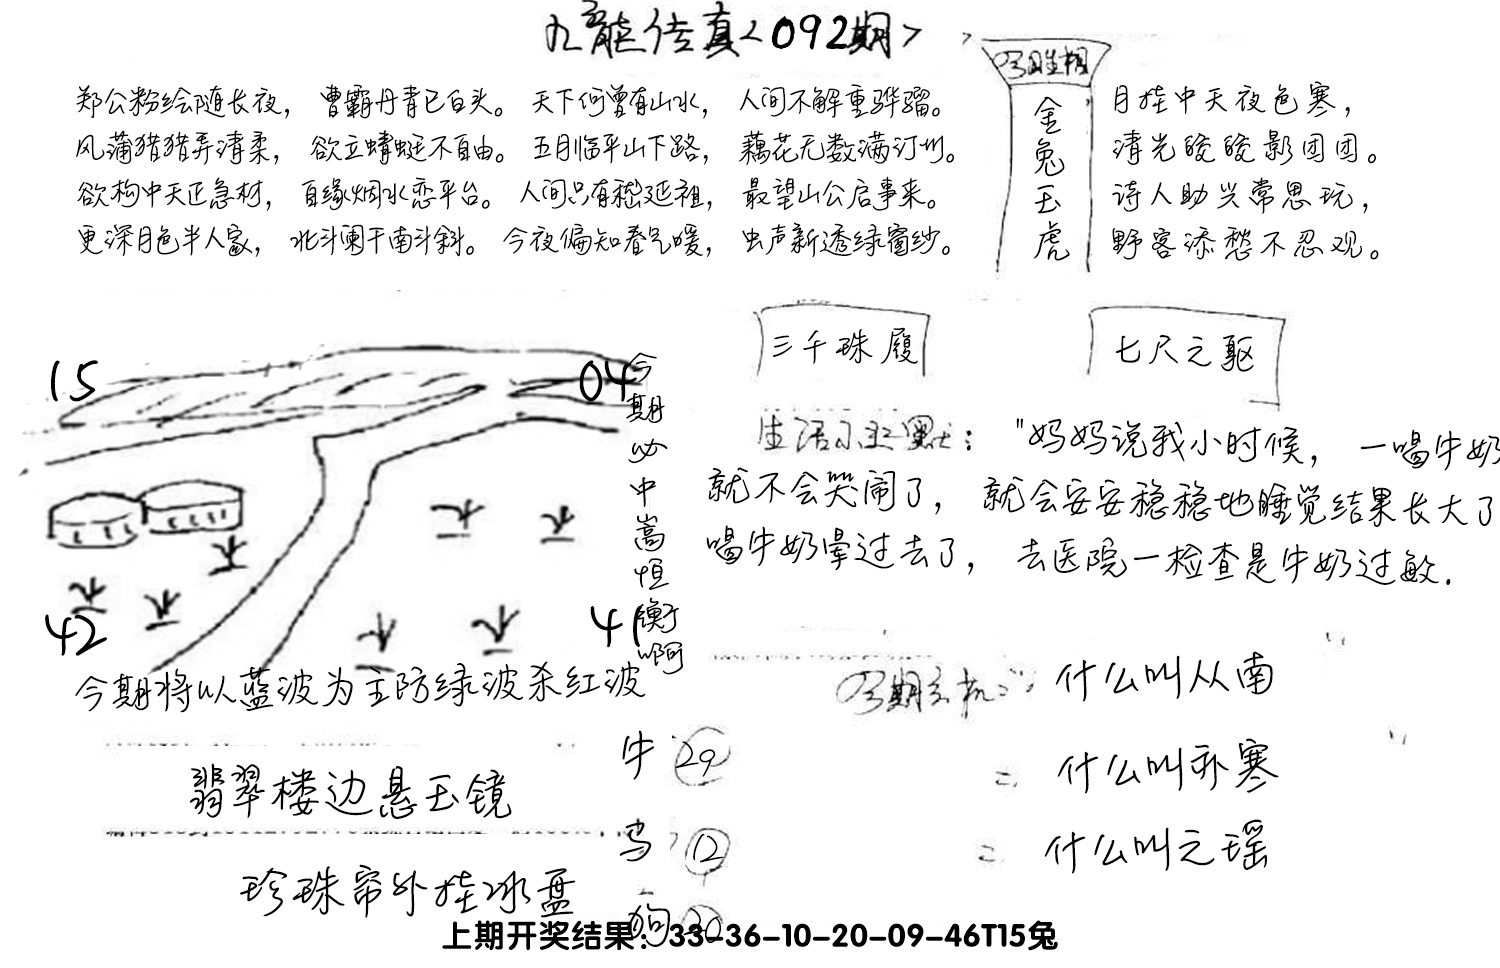 九龙传真<092期>
郑公粉绘随长夜，曹霸丹青已白头。天下何曾有山水，人间不解重骅骝。
风蒲猎猎弄清柔，欲立蜻蜓不自由。五月临平山下路，藕花无数满汀州。
欲构中天正急材，自缘烟水恋平台。人间只有嵇延祖，最望山公启事来。
更深月色半人家，北斗阑干南斗斜。今夜偏知春气暖，虫声新透绿窗纱。
金兔玉虎
月挂中天夜色寒，
清光皎皎影团团。
诗人助兴常思玩，
野客添愁不忍观。
15
04
42
41
今期必中嵩恒衡啊
今期将以蓝波为主防绿波杀红波
翡翠楼边悬玉镜
珍珠帘外挂冰盘
三千珠履
七尺之驱
"妈妈说我小时候，一喝牛奶
就不会哭闹了，就会安安稳稳地睡觉结果长大了
喝牛奶晕过去了，去医院一检查是牛奶过敏.
什么叫从南
什么叫孙寒
什么叫元瑶
牛 29
12
狗 20
上期开奖结果：33-36-10-20-09-46T15兔